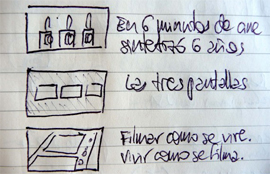 En 6 minutos de cine
sintetizo 6 años
Las tres pantallas
Filmar como se vive.
Vivir como se filma.